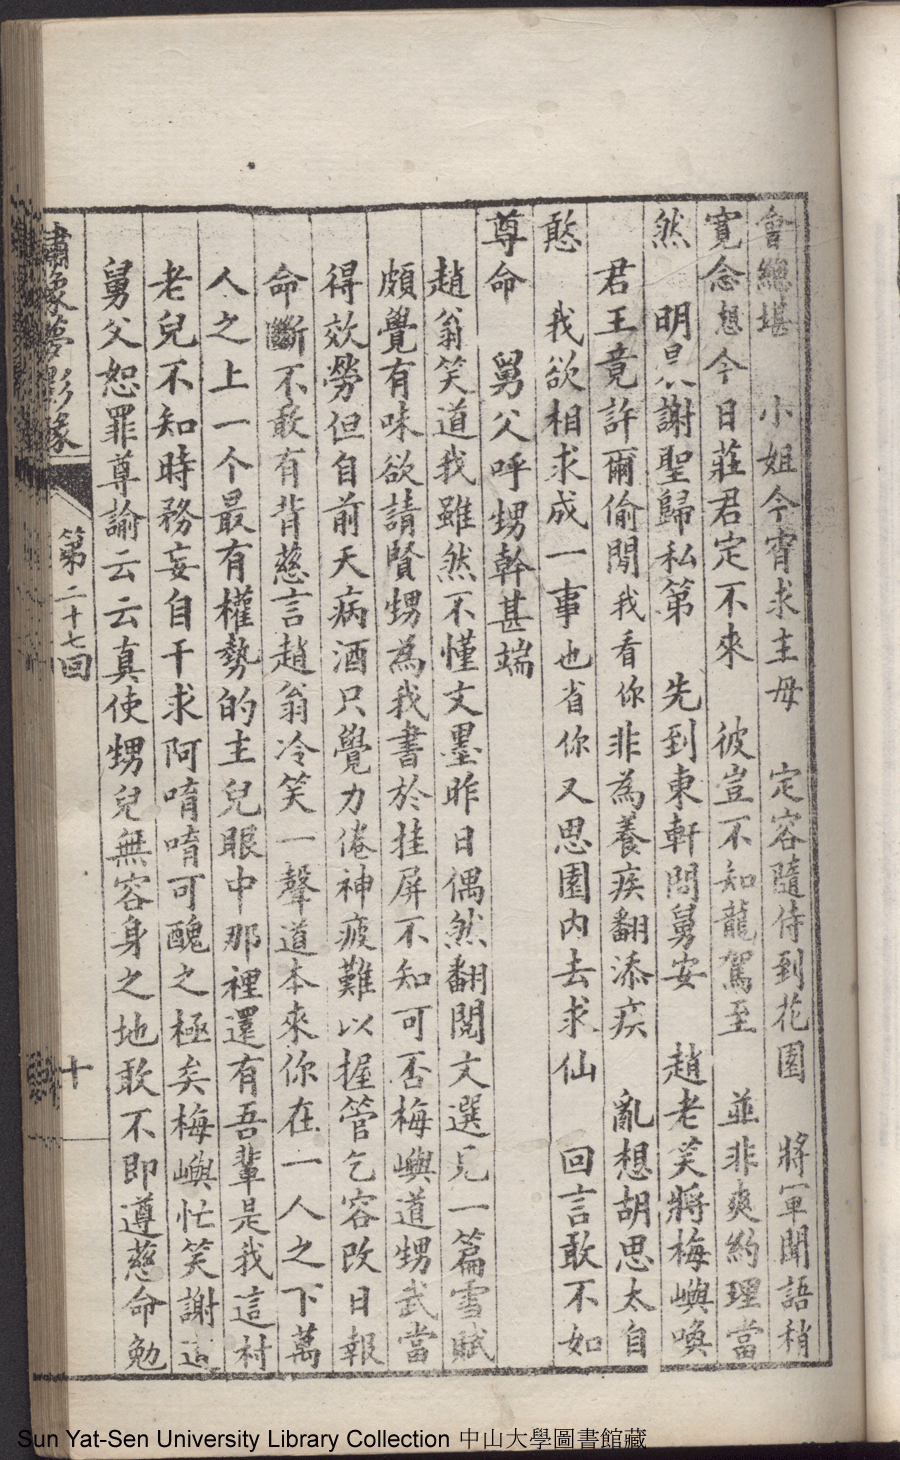 會總堪　小姐今宵求主母　定容隨侍到花園　將軍聞語稍
寬念想今日莊君定不來　彼豈不知龍駕至　並非爽約理當
然　明謝聖歸私第　先到東軒問舅安　趙老笑將梅嶼喚
君王竟許爾偷閒我看你非為養疾翻添疾　亂想胡思太自
憨　我欲相求成一事也省你又思園內去求仙　回言敢不如
尊命　舅父呼甥幹甚端
趙翁笑道我雖然不懂文墨昨日偶然翻閱文選見一篇雪賦
頗覺有味欲請賢甥為我書於挂屏不知可否梅嶼道甥武當
得效勞但自前天病酒只覺力倦神疲難以握管乞容改日報
命斷不敢有背慈言趙翁冷笑一聲道本來你在一人之下萬
人之上一个最有權勢的主兒眼中那裡還有吾輩是我這村
老兒不知時務妄自干求阿唷唷可醜之極矣梅嶼忙笑謝道
舅父恕罪尊諭云云真使甥兒無容身之地敢不即遵慈命勉
繡像夢影緣
第二十七回
十
Sun Yat-Sen University Library Collection 中山大學圖書館藏